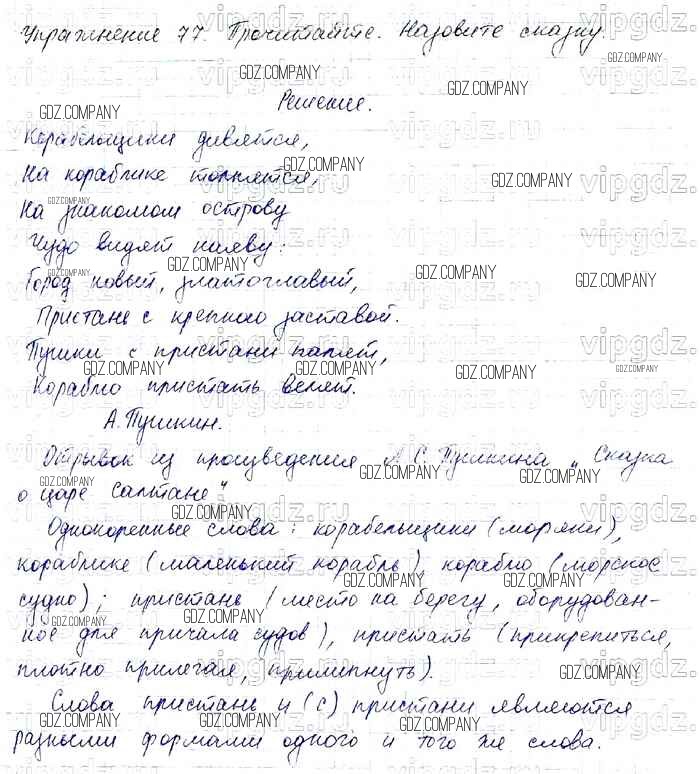 Упражнение 77. Прочитайте. Назовите сказку.
Решение.
Корабельщики дивятся,
На кораблике толпятся,
На знакомом острову
Чудо видят наяву:
Город новый, златоглавый,
Пристань с крепкою заставой.
Пушки с пристани палят,
Кораблю пристать велят.
А. Пушкин.
Отрывок из произведения А.С. Пушкина „Сказка
о царе Салтане"
Однокоренные слова: корабельщики (моряки),
кораблике (маленький корабль), кораблю (морское
судно); пристань (место на берегу, оборудован-
ное для причала судов), пристать (прикрепиться,
плотно прилегая, прилипнуть).
Слова пристань и (с) пристани являются
разными формами одного и того же слова.